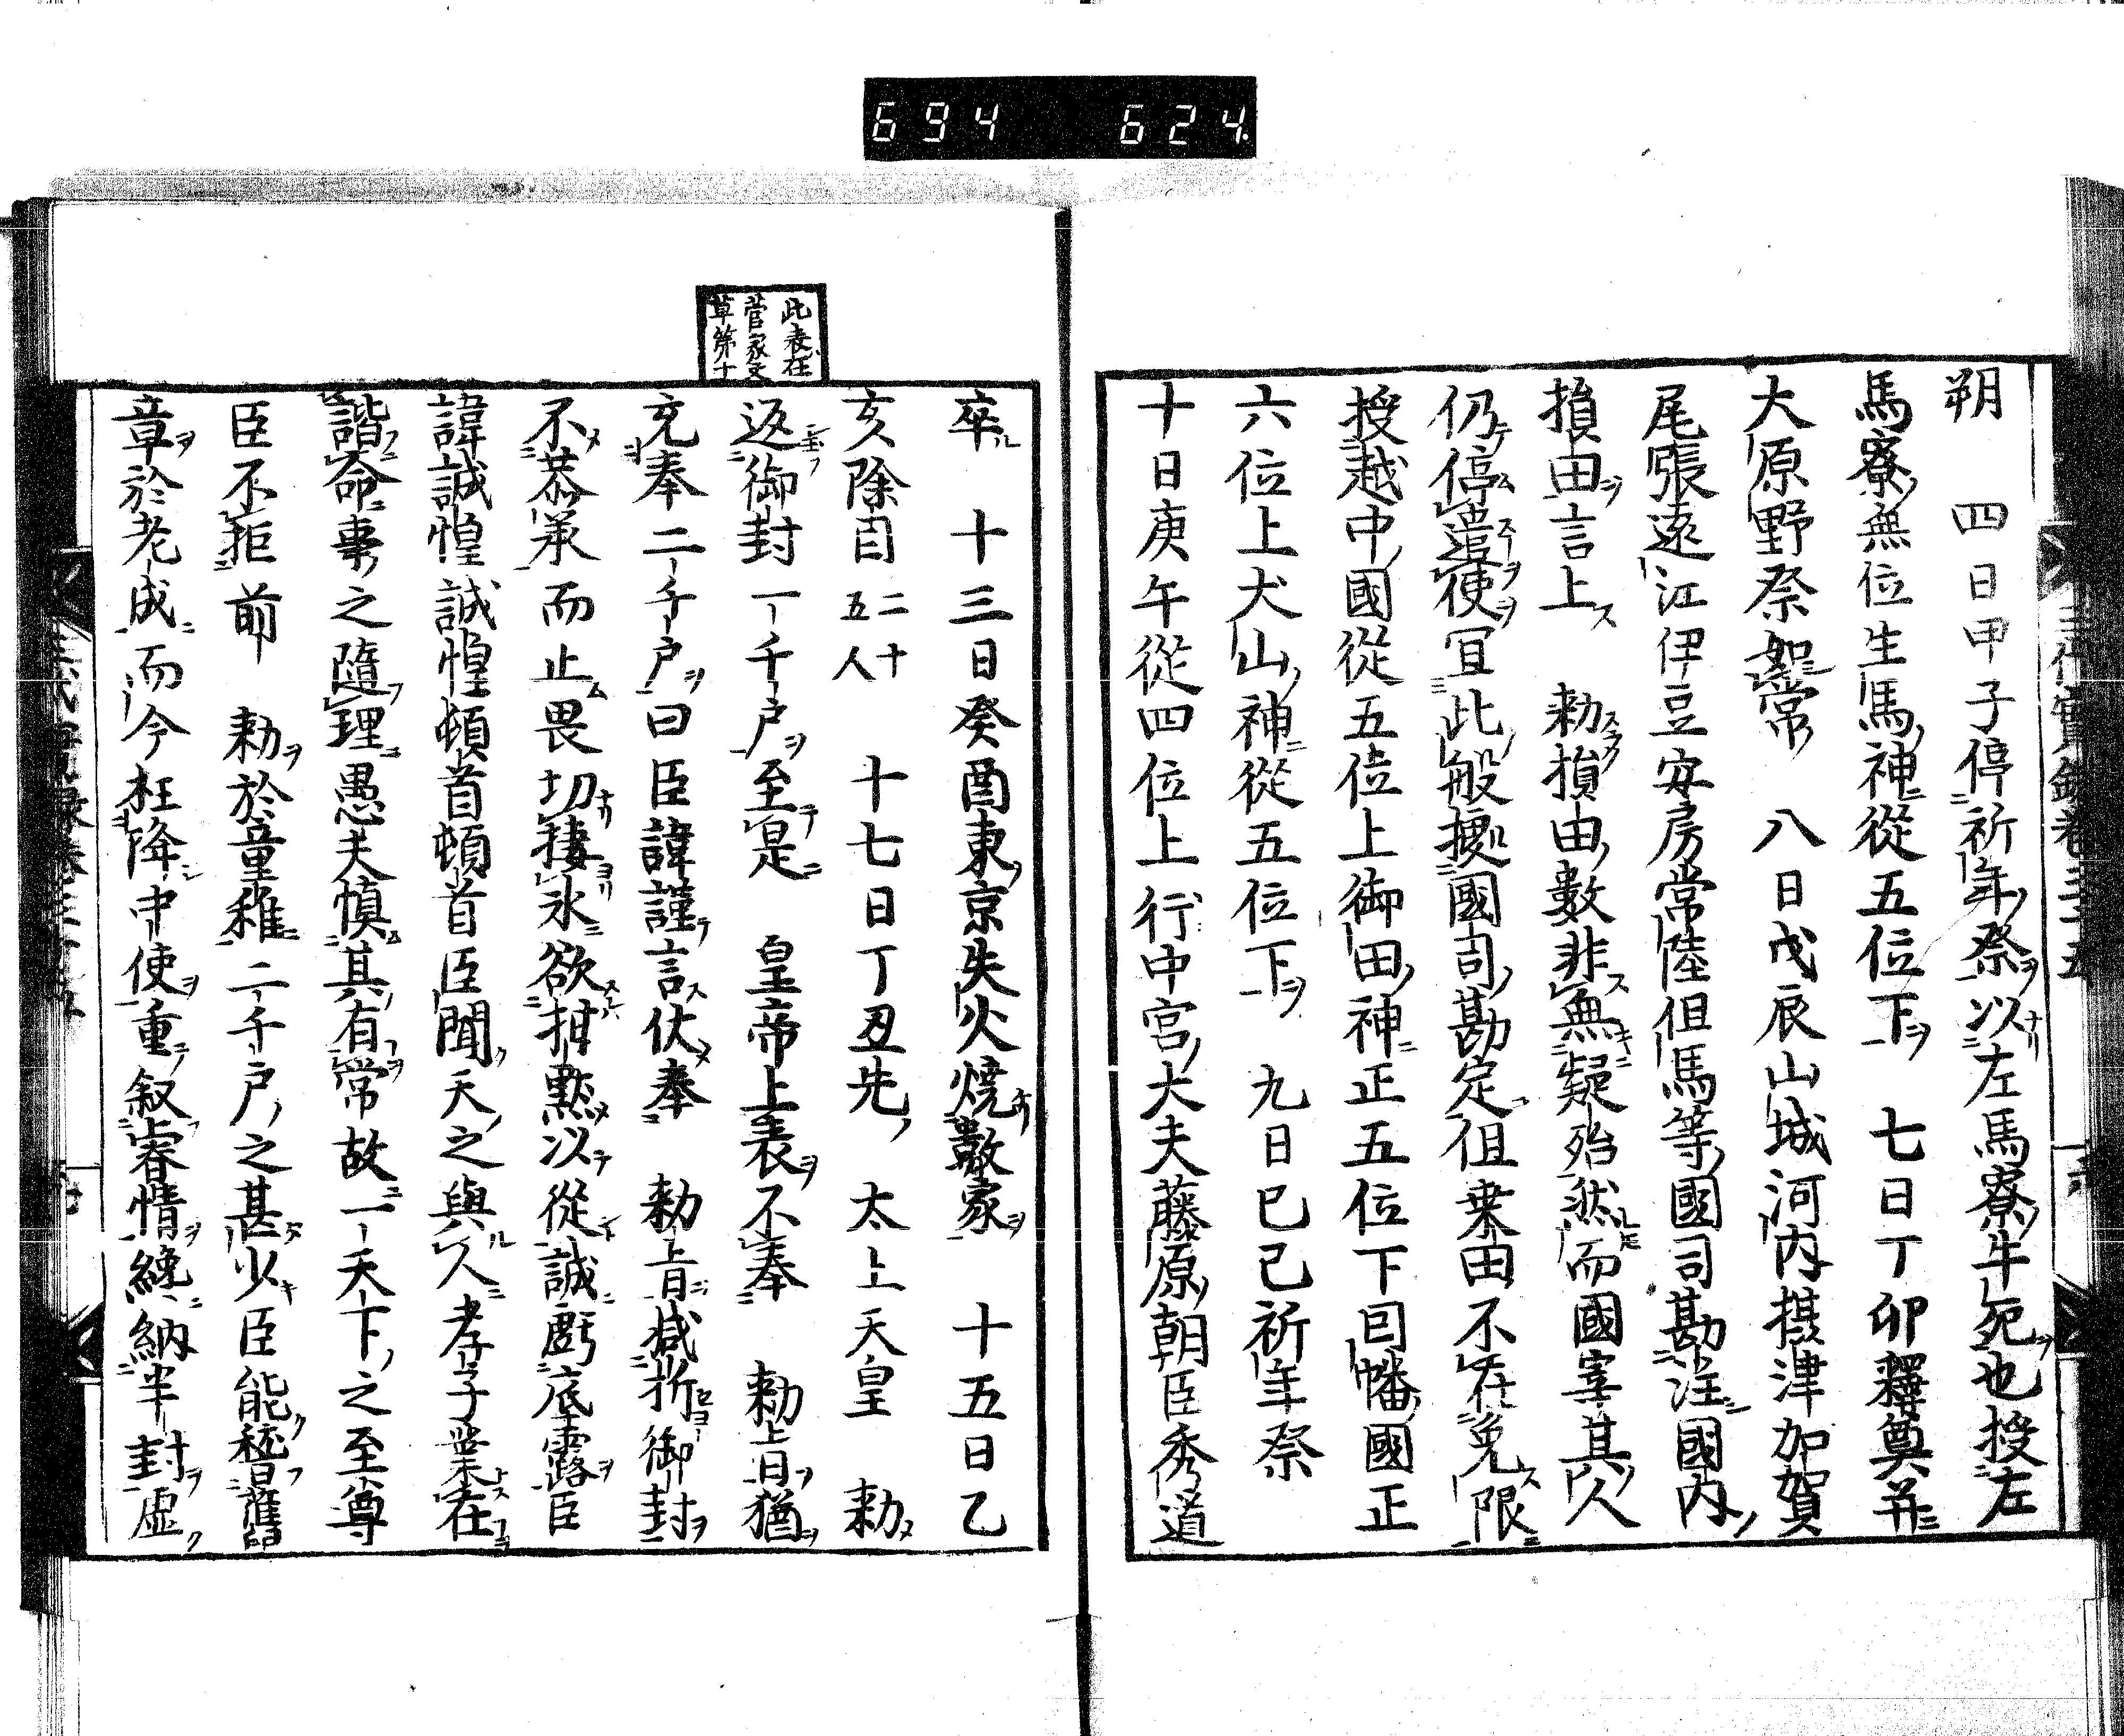 694 624.
朔　四日甲子停祈年祭以左馬寮牛死也授左
馬寮無位生馬神從五位下　七日丁卯釋奠并
大原野祭如常　八日戊辰山城河内摂津加賀
尾張遠江伊豆安房常陸但馬等國司勘注國内
損田言上　勅損由數非無疑殆然而國宰其人
仍停遣使冝此般據國司勘定但乗田不在免限
授越中國從五位上御田神正五位下因幡國正
六位上犬山神從五位下　九日己巳祈年祭
十日庚午從四位上行中宮大夫藤原朝臣秀道
卒　十三日癸酉東京失火燒數家　十五日乙
亥除目二十五人　十七日丁丑先太上天皇　勅
返御封一千戸至是　皇帝上表不奉　勅旨猶
充奉二千戸曰臣諱謹言伏奉　勅旨減折御封
不恭承而止畏切棲氷欲拑黙以從誠虧底露臣
諱誠惶誠惶頓首頓首臣聞天之與人孝子業在
諧命事之隨理愚夫愼其有常故一天下之至尊
臣不拒前　勅於童稚二千戸之甚少臣能稽舊
章於老成而今枉降中使重叙睿情纔納半封虚
此表在
菅家文
草第十